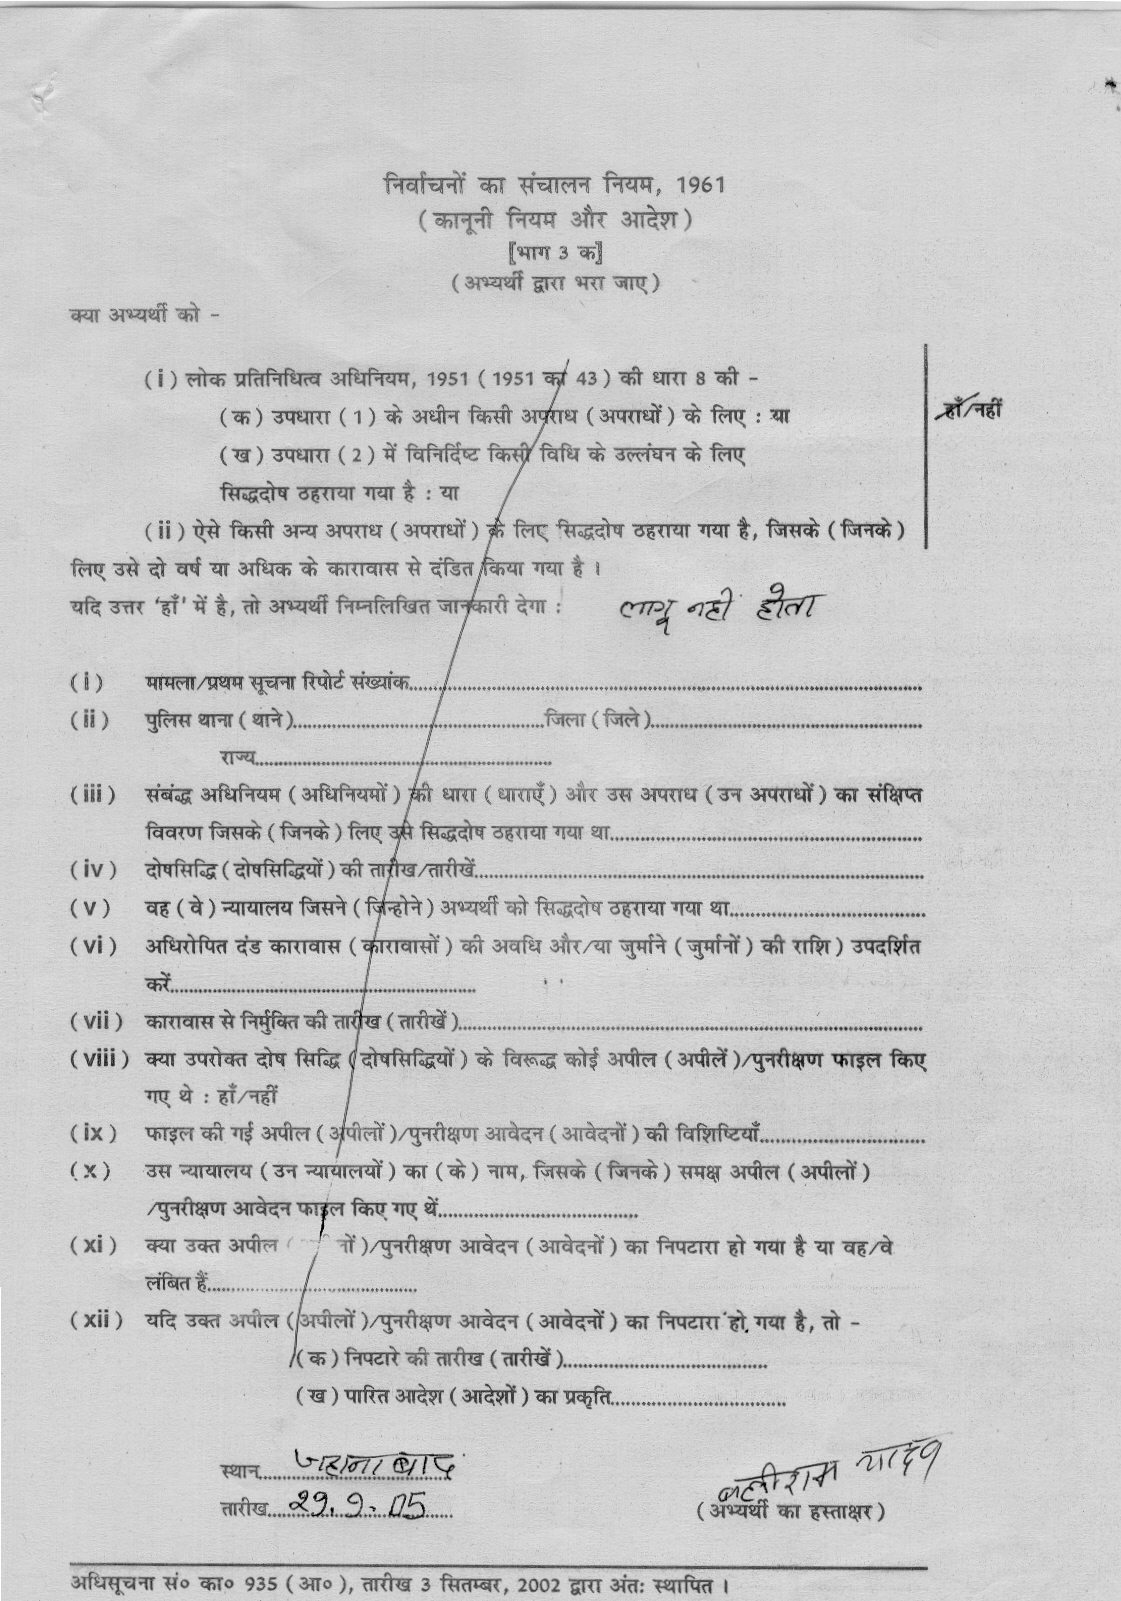 निर्वाचनों का संचालन नियम, 1961
(कानूनी नियम और आदेश)
[भाग 3 क]
(अभ्यर्थी द्वारा भरा जाए)
क्या अभ्यर्थी को -
(i) लोक प्रतिनिधित्व अधिनियम, 1951 (1951 का 43) की धारा 8 की -
(क) उपधारा (1) के अधीन किसी अपराध (अपराधों) के लिए : या
हाँ/नहीं
(ख) उपधारा (2) में विनिर्दिष्ट किसी विधि के उल्लंघन के लिए
सिद्धदोष ठहराया गया है : या
(ii) ऐसे किसी अन्य अपराध (अपराधों) के लिए सिद्धदोष ठहराया गया है, जिसके (जिनके)
लिए उसे दो वर्ष या अधिक के कारावास से दंडित किया गया है ।
यदि उत्तर 'हाँ' में है, तो अभ्यर्थी निम्नलिखित जानकारी देगा : लागू नहीं होता
(i) मामला/प्रथम सूचना रिपोर्ट संख्यांक
(ii) पुलिस थाना (थाने) जिला (जिले)
राज्य
(iii) संबंद्ध अधिनियम (अधिनियमों) की धारा (धाराएँ) और उस अपराध (उन अपराधों) का संक्षिप्त
विवरण जिसके (जिनके) लिए उसे सिद्धदोष ठहराया गया था
(iv) दोषसिद्धि (दोषसिद्धियों) की तारीख/तारीखें
(v) वह (वे) न्यायालय जिसने (जिन्होने) अभ्यर्थी को सिद्धदोष ठहराया गया था
(vi) अधिरोपित दंड कारावास (कारावासों) की अवधि और/या जुर्माने (जुर्मानों) की राशि) उपदर्शित
करें
(vii) कारावास से निर्मुक्ति की तारीख (तारीखें)
(viii) क्या उपरोक्त दोष सिद्धि (दोषसिद्धियों) के विरूद्ध कोई अपील (अपीलें)/पुनरीक्षण फाइल किए
गए थे : हाँ/नहीं
(ix) फाइल की गई अपील (अपीलों)/पुनरीक्षण आवेदन (आवेदनों) की विशिष्टियाँ
(x) उस न्यायालय (उन न्यायालयों) का (के) नाम, जिसके (जिनके) समक्ष अपील (अपीलों)
/पुनरीक्षण आवेदन फाइल किए गए थें
(xi) क्या उक्त अपील ( नों)/पुनरीक्षण आवेदन (आवेदनों) का निपटारा हो गया है या वह/वे
लंबित हैं
(xii) यदि उक्त अपील (अपीलों)/पुनरीक्षण आवेदन (आवेदनों) का निपटारा हो गया है, तो -
(क) निपटारे की तारीख (तारीखें)
(ख) पारित आदेश (आदेशों) का प्रकृति
स्थान जहानाबाद
तारीख 29.9.05
यादव
(अभ्यर्थी का हस्ताक्षर)
अधिसूचना सं० का० 935 (आ०), तारीख 3 सितम्बर, 2002 द्वारा अंतः स्थापित ।